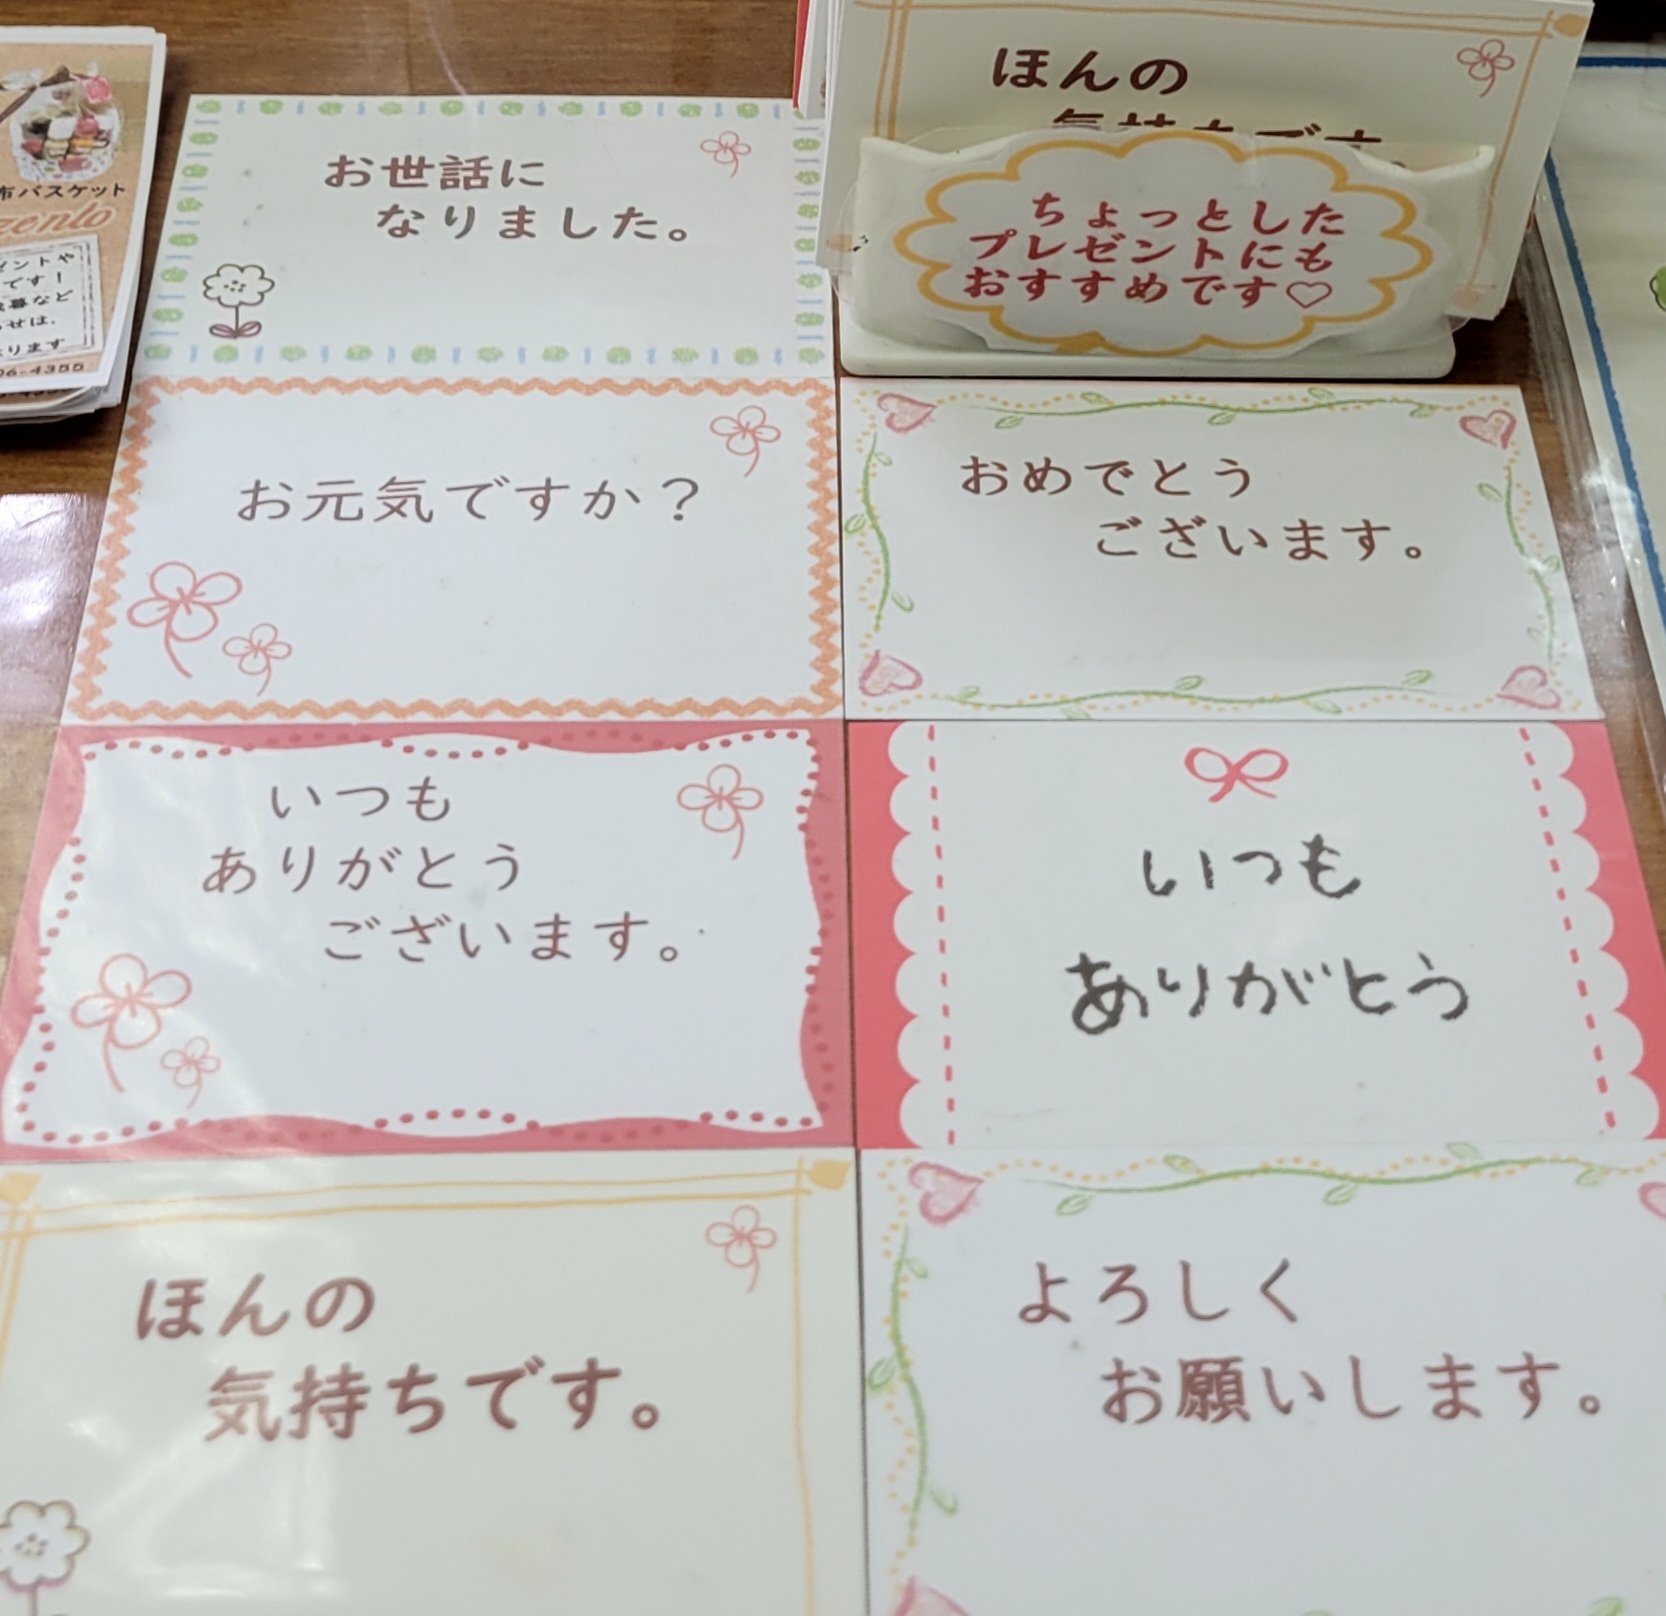 布バスケット
です！
06-4355
お世話に
なりました。
ほんの
ちょっとした
プレゼントにも
おすすめです♡
お元気ですか？
おめでとう
ございます。
いつも
ありがとう
ございます。
いつも
ありがとう
ほんの
気持ちです。
よろしく
お願いします。